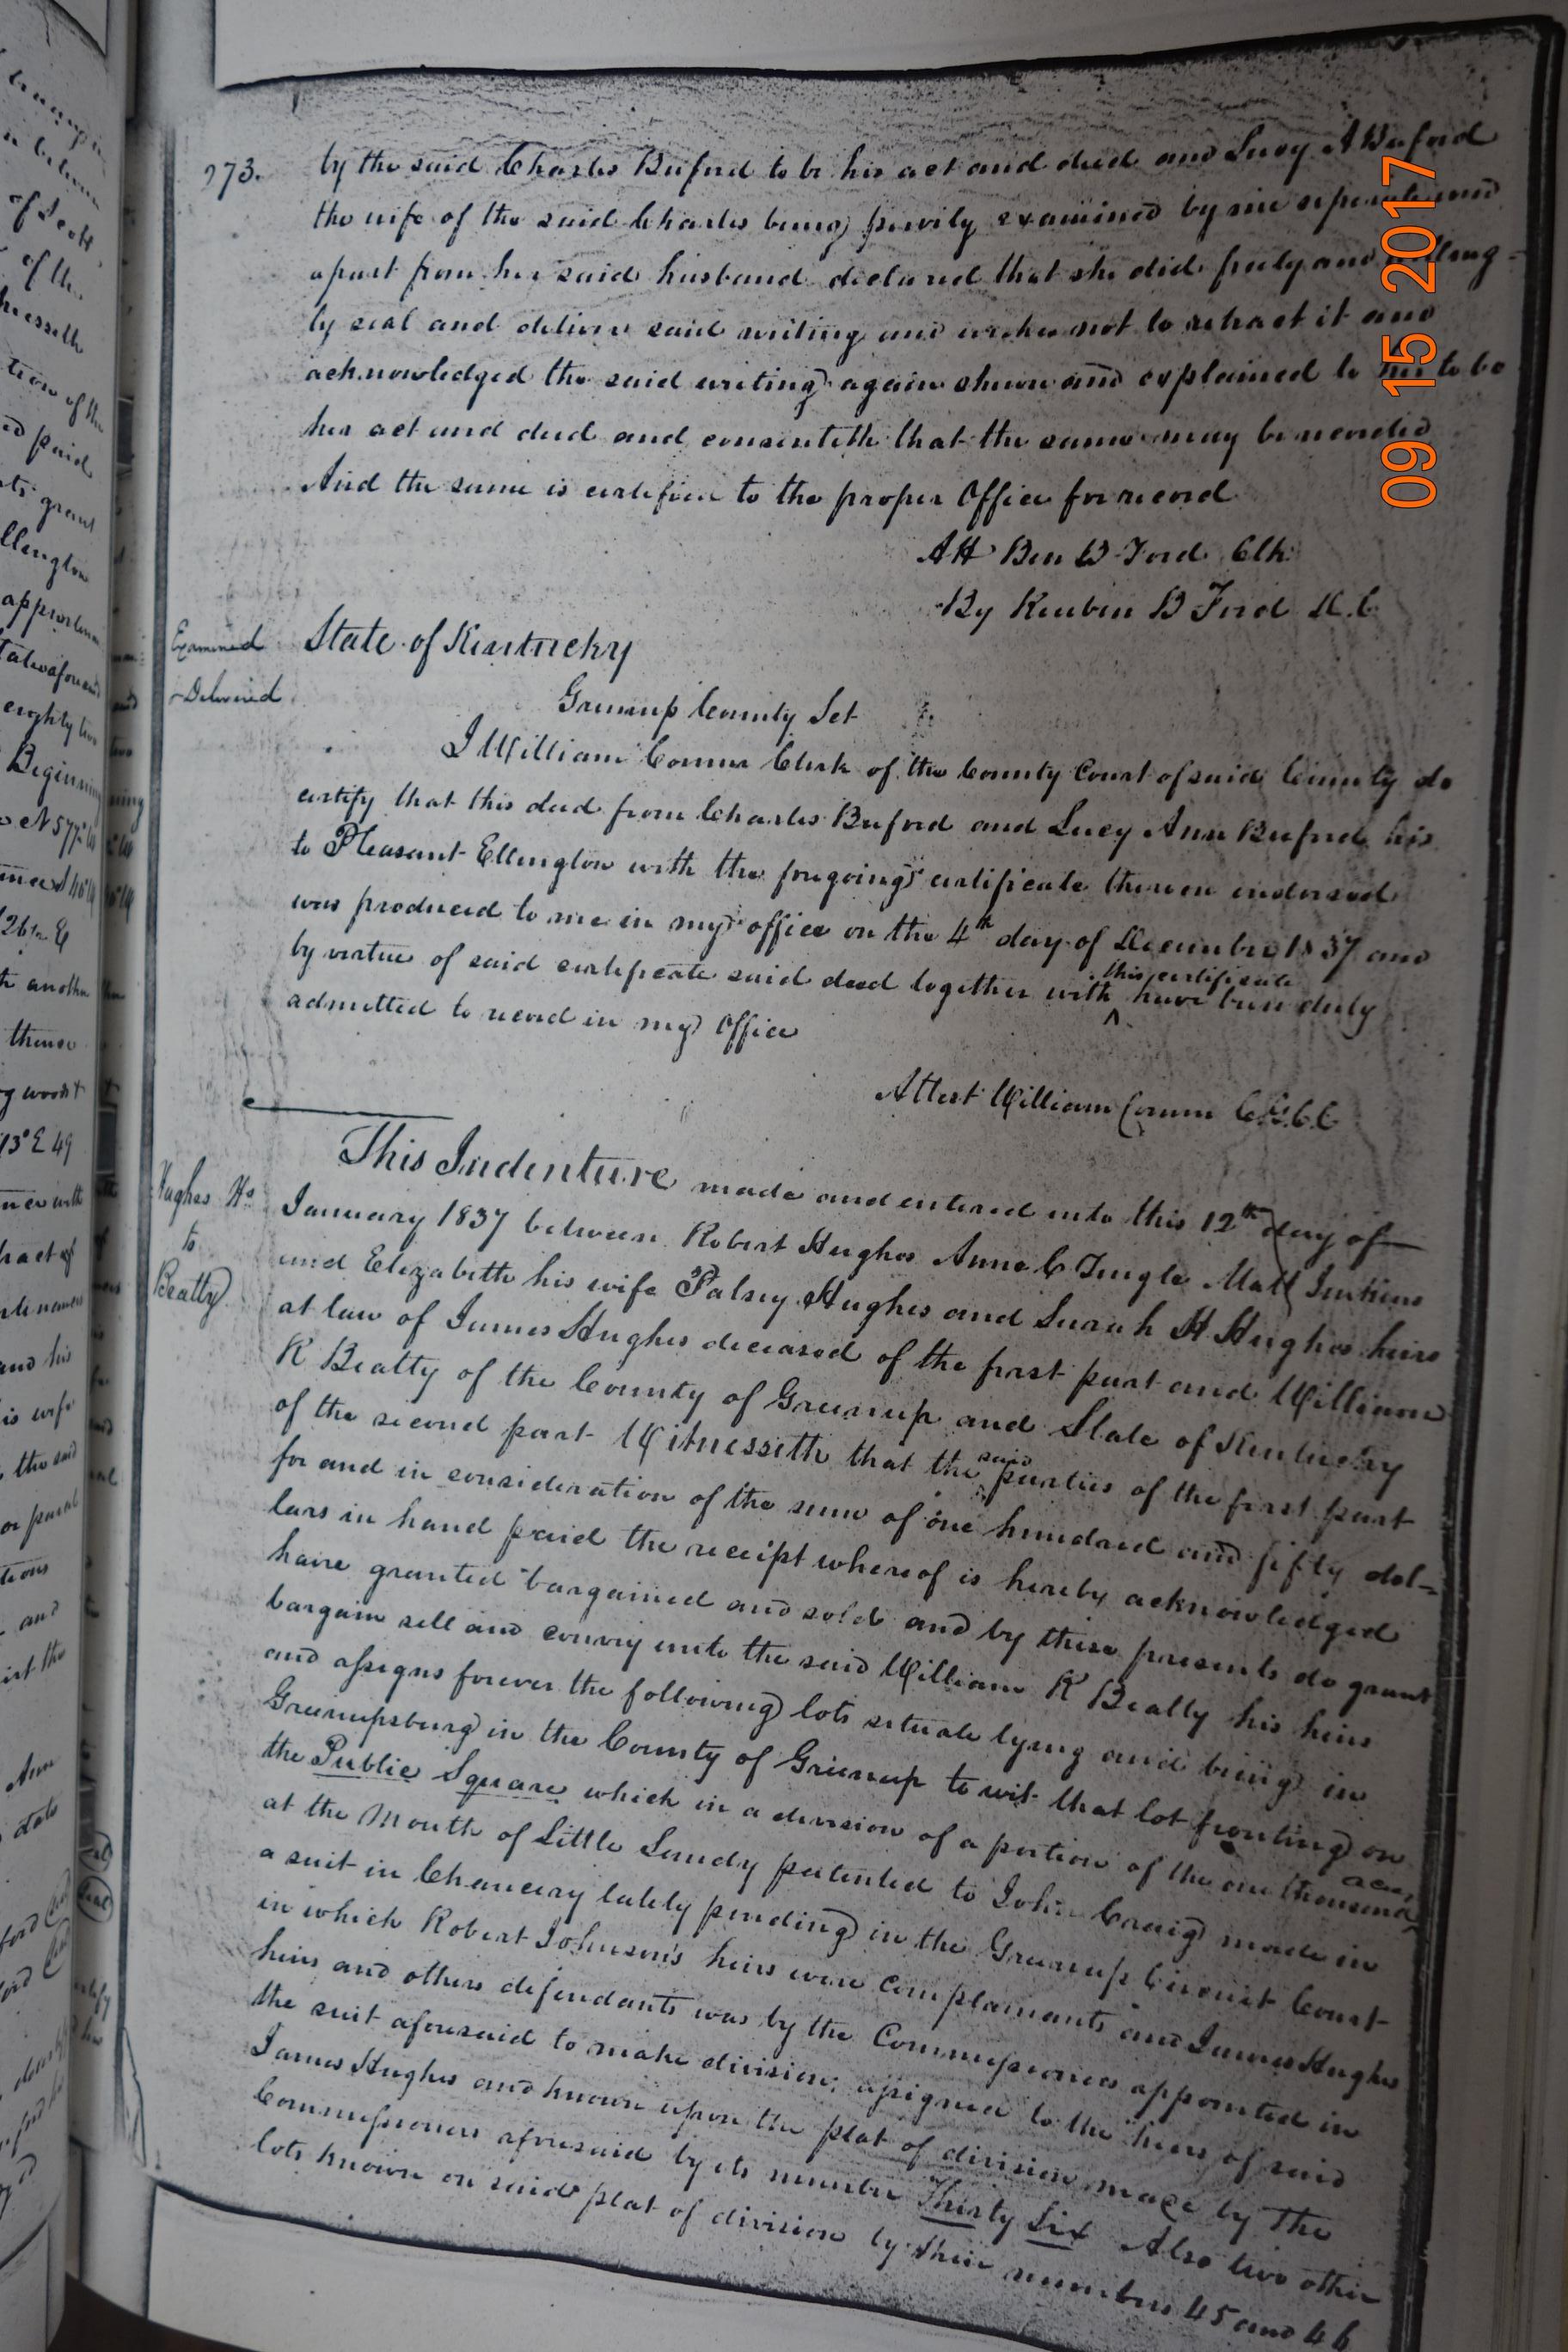 273.
by the said Charles Buford to be his act and deed and Lucy A Buford
the wife of the said Charles being privily examined by me separate and
apart from her said husband declared that she did freely and willing-
ly seal and deliver said writing and wishes not to retract it and
acknowledged the said writing again shewn and explained to her to be
her act and deed and consenteth that the same may be recorded
And the same is certified to the proper Office for record
Att Ben B Ford Clk
By Reuben B Ford D.C
Examined
Delivered
State of Kentucky
Greenup County Set
I William Corum Clerk of the County Court of said County do
certify that this deed from Charles Buford and Lucy Ann Buford his
to Pleasant Ellington with the foregoing certificate thereon endorsed
was produced to me in my office on the 4th day of December 1837 and
by virtue of said certificate said deed together with ^this certificate have been duly
admitted to record in my Office
Attest William Corum C.G.C.C
Hughes Hs
to
Beatty
This Indenture made and entered into this 12th day of
January 1837 between Robert Hughes Anne C Tingle Matt Jenkins
and Elizabeth his wife Patsey Hughes and Sarah H Hughes heirs
at law of James Hughes deceased of the first part and William
R Beatty of the County of Greenup and State of Kentucky
of the second part Witnesseth that the said parties of the first part
for and in consideration of the sum of one hundred and fifty dol-
lars in hand paid the receipt whereof is hereby acknowledged
have granted bargained and sold and by these presents do grant
bargain sell and convey unto the said William R Beatty his heirs
and assigns forever the following lots situate lying and being in
Greenupsburg in the County of Greenup to wit that lot fronting on
the Public Square which in a division of a portion of the one thousand acres
at the mouth of Little Sandy patented to John Craig made in
a suit in Chancery lately pending in the Greenup Circuit Court
in which Robert Johnson's heirs were complainants and James Hughes
heirs and others defendants was by the Commissioners appointed in
the suit aforesaid to make division; assigned to the heirs of said
James Hughes and known upon the plat of division made by the
Commissioners aforesaid by its number Thirty Six Also two other
lots known on said plat of division by their numbers 45 and 46
09 15 2017